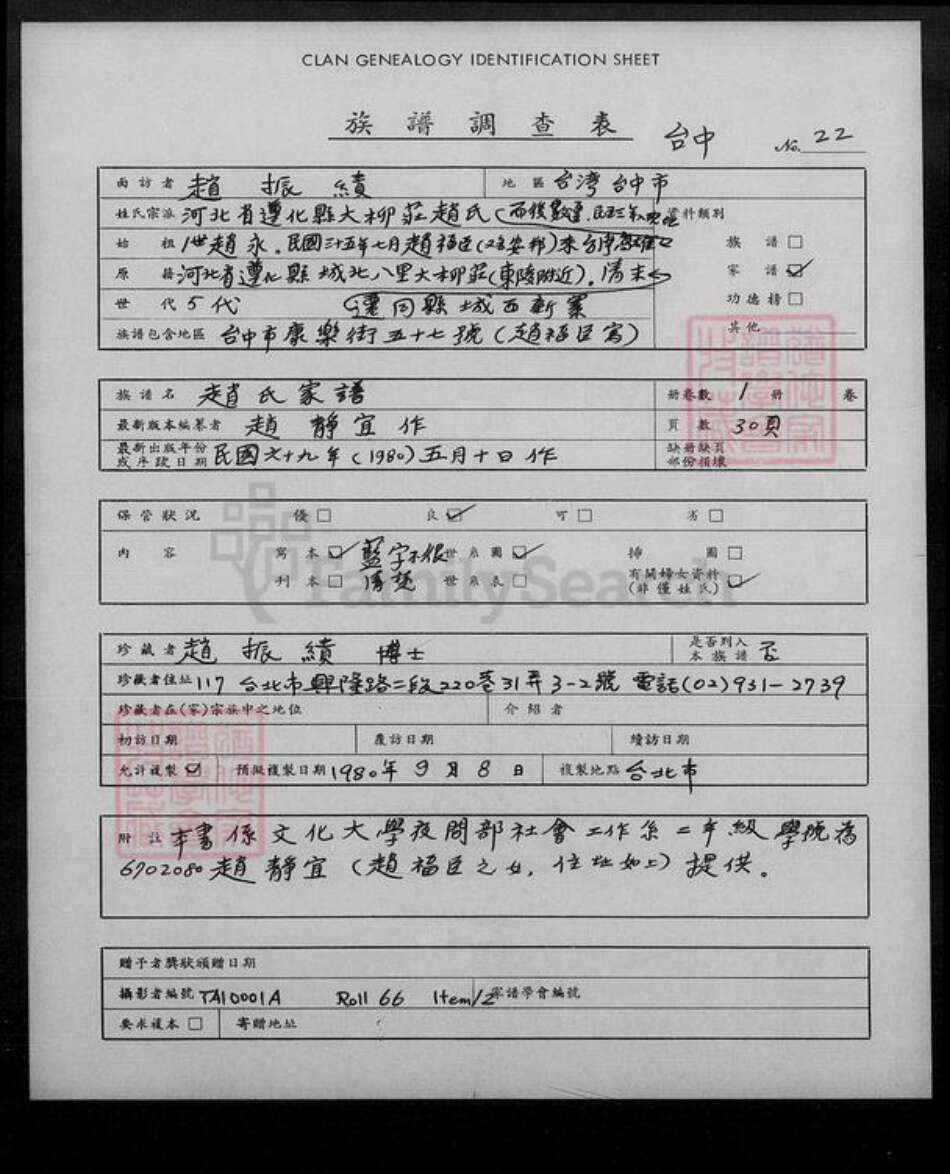 CLAN GENEALOGY IDENTIFICATION SHEET
族譜調查表 台中 No. 22
面訪者 趙振績 地區 台湾台中市
姓氏宗派 河北省遵化縣大柳莊趙氏 資料類別
始祖 1世趙永.民國三十五年七月趙福臣 族譜□
原籍 河北省遵化縣城北八里大柳莊(東陵附近).清末 家譜☑
世代 5代 遷同縣城西新寨 功德榜□
族譜包含地區 台中市康樂街五十七號(趙福臣寓) 其他
族譜名 趙氏家譜 册卷數 1册 卷
最新版本編纂者 趙靜宜作 頁數 30頁
最新出版年份或序跋日期 民國六十九年(1980)五月十日作 缺册缺頁部份損壞
保管狀況 優□ 良☑ 可□ 劣□
內容 寫本☑ 藍字不很清楚 世系圖☑ 插圖□
刊本□ 世系表□ 有關婦女資料(非僅姓氏)☑
FamilySearch
珍藏者 趙振績 博士 是否列入本族譜 否
珍藏者住址 117 台北市興隆路二段220巷31弄3-2號 電話(02)931-2739
珍藏者在(家)宗族中之地位 介紹者
初訪日期 覆訪日期 續訪日期
允許複製☑ 預擬複製日期 1980年9月8日 複製地點 台北市
附註 本書係文化大學夜間部社會工作系二年級學號為
6702080趙靜宜(趙福臣之女,住址如上)提供。
贈予者獎狀頒贈日期
攝影者編號 TA10001A Roll 66 Item 12 家譜學會編號
要求複本□ 寄贈地址